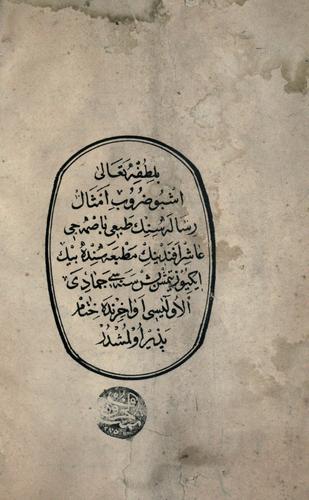 بلطفه تعالى
اشبو ضروب امثال
رساله سنك طبعى باصمه جى
عاشر افندينك مطبعه سنده بيك
ايكيوز يتمش بش سنه سى جماذى
الاوليسى اواخرنده ختام
پذير اولمشدر